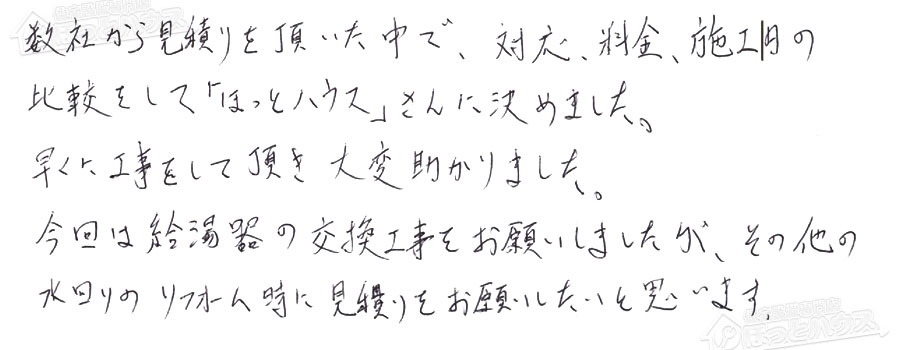 数社から見積りを頂いた中で、対応、料金、施工日の
比較をして「ほっとハウス」さんに決めました。
早くに工事をして頂き大変助かりました。
今回は給湯器の交換工事をお願いしましたが、その他の
水回りのリフォーム時に見積りをお願いしたいと思います。
ほっとハウス